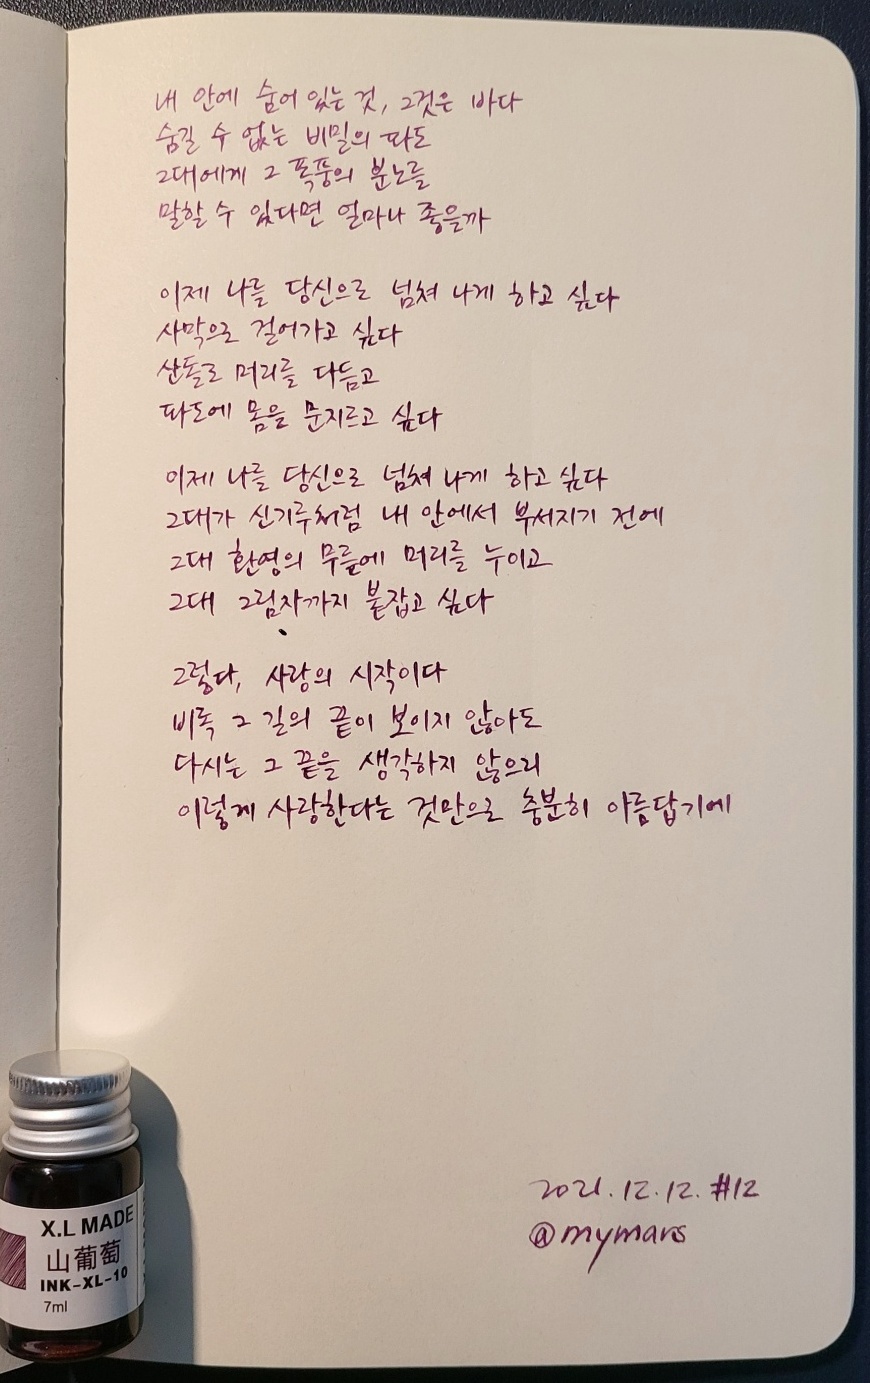 내 안에 숨어 있는 것, 그것은 바다
숨길 수 없는 비밀의 파도
그대에게 그 폭풍의 분노를
말할 수 있다면 얼마나 좋을까
이제 나를 당신으로 넘쳐 나게 하고 싶다
사막으로 걸어가고 싶다
산돌로 머리를 다듬고
파도에 몸을 문지르고 싶다
이제 나를 당신으로 넘쳐 나게 하고 싶다
그대가 신기루처럼 내 안에서 부서지기 전에
그대 환영의 무릎에 머리를 누이고
그대 그림자까지 붙잡고 싶다
그렇다, 사랑의 시작이다
비록 그 길의 끝이 보이지 않아도
다시는 그 끝을 생각하지 않으리
이렇게 사랑한다는 것만으로 충분히 아름답기에
2021.12.12. #12
@mymars
X.L MADE
山葡萄
INK-XL-10
7ml